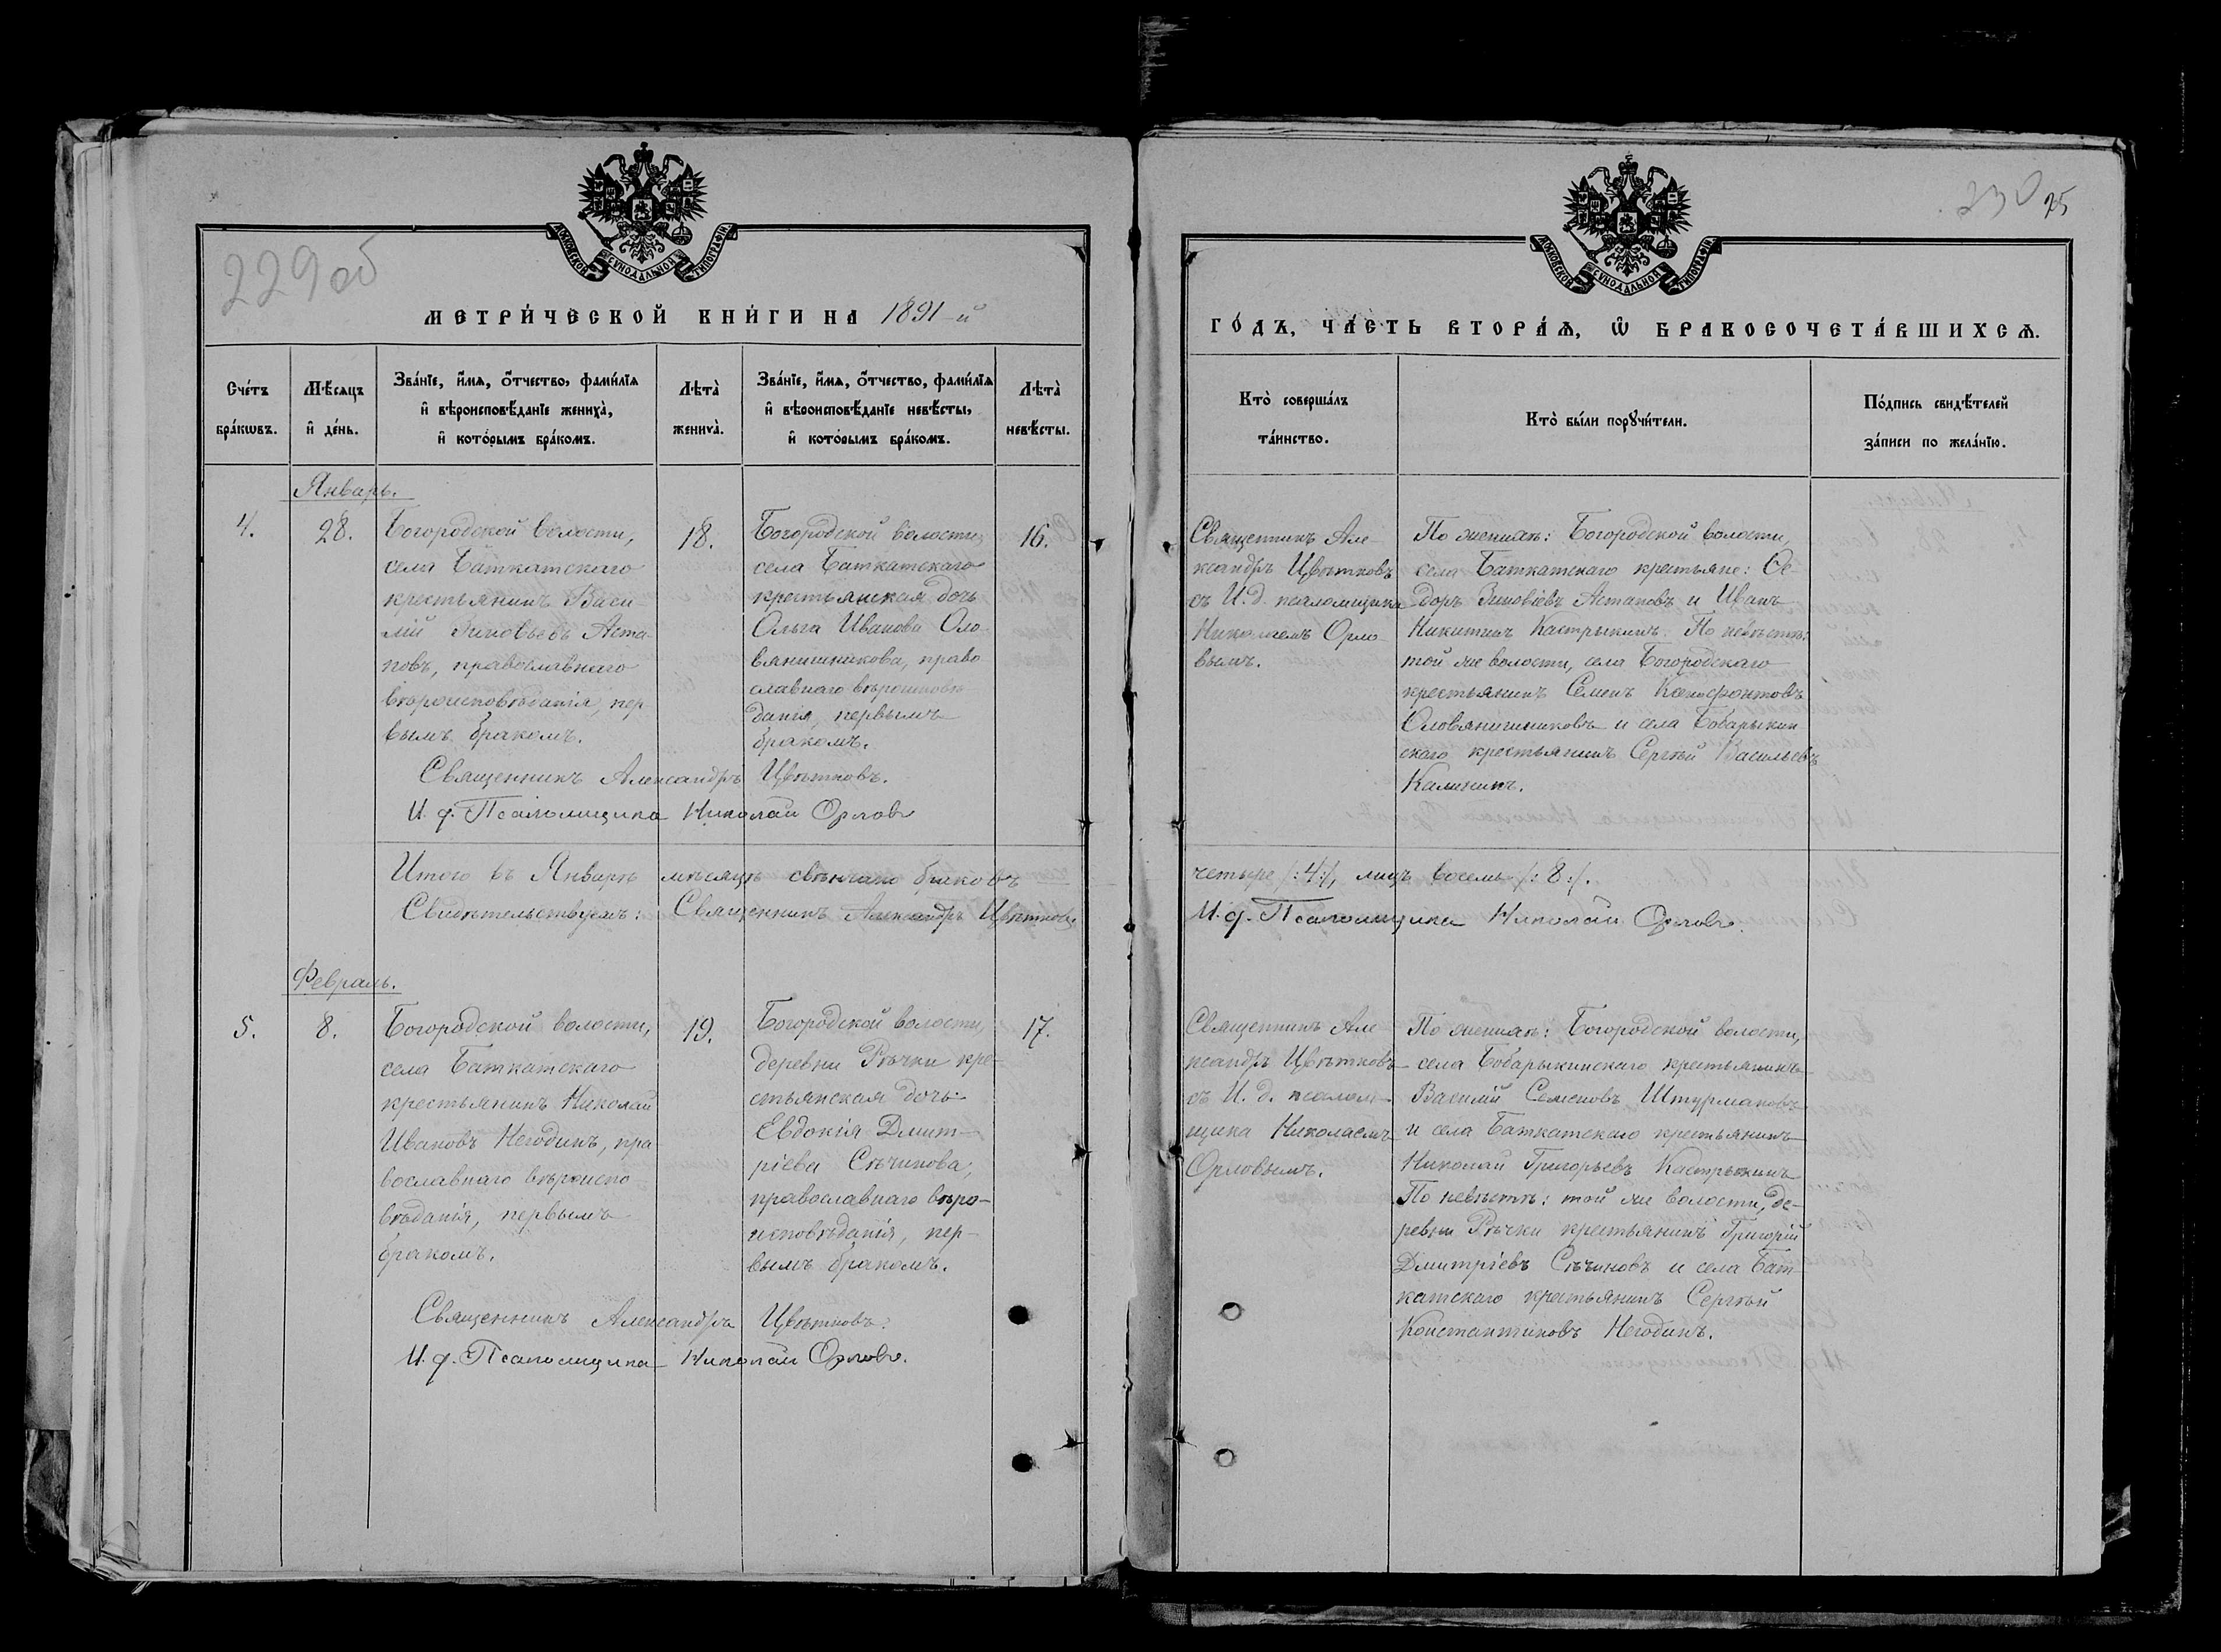 229 об
МОСКОВСКОЙ СѴНОДАЛЬНОЙ ТИПОГРАФІИ.
МЕТРИ́ЧЕСКОЙ КНИ́ГИ НА 1891-й
Сче́тъ бра́кѡвъ.
Мѣ́сяцъ и҆ де́нь.
Зва́нїе, и҆́мѧ, ѻ҆́тчество, фами́лїѧ
и҆ вѣроисповѣ́данїе жениха̀,
и҆ кото́рымъ бра́комъ.
Лѣта̀ жениха̀.
Зва́нїе, и҆́мѧ, ѻ҆́тчество, фами́лїѧ
и҆ вѣроисповѣ́данїе невѣ́сты,
и҆ кото́рымъ бра́комъ.
Лѣта̀ невѣ́сты.
Январь.
4.
28.
Богородской волости,
села Баткатскаго
крестьянинъ Васи-
лій Зиновьевъ Аста-
повъ, православнаго
вѣроисповѣданія, пер
вымъ бракомъ.
18.
Богородской волости,
села Баткатскаго
крестьянская дочь
Ольга Иванова Оло-
вянишникова, право
славнаго вѣроисповѣ
данія, первымъ
бракомъ.
16.
Священникъ Александръ Цвѣтковъ.
И. д. Псаломщика Николай Орловъ
Итого въ Январѣ мѣсяцѣ свѣнчано браковъ
Свидѣтельствуемъ: Священникъ Александръ Цвѣтковъ
Февраль.
5.
8.
Богородской волости,
села Баткатскаго
крестьянинъ Николай
Ивановъ Негодинъ, пра
вославнаго вѣроиспо
вѣданія, первымъ
бракомъ.
19.
Богородской волости,
деревни Рѣчки кре-
стьянская дочь
Евдокія Дмит-
ріева Сѣчинова,
православнаго вѣро-
исповѣданія, пер-
вымъ бракомъ.
17.
Священникъ Александръ Цвѣтковъ.
И. д. Псаломщика Николай Орловъ.
230 25
МОСКОВСКОЙ СѴНОДАЛЬНОЙ ТИПОГРАФІИ.
ГО́ДЪ, ЧА́СТЬ ВТОРА́Ѧ, Ѽ БРАКОСОЧЕТА́ВШИХСѦ.
Кто̀ соверша́лъ
та́инство.
Кто̀ бы́ли порꙋчи́тели.
По́дпись свидѣ́телей
за́писи по жела́нїю.
Священникъ Але
ксандръ Цвѣтковъ
съ И. д. псаломщика
Николаемъ Орло
вымъ.
По женихѣ: Богородской волости,
села Баткатскаго крестьяне: Ѳе-
доръ Зиновіевъ Астаповъ и Иванъ
Никитинъ Кастрыкинъ. По невѣстѣ:
той же волости, села Богородскаго
крестьянинъ Семенъ Ксенофонтовъ
Оловянишниковъ и села Бобарыкин
скаго крестьянинъ Сергѣй Васильевъ
Калининъ.
четыре /:4:/, лицъ восемь /:8:/.
И. д. Псаломщика Николай Орловъ.
Священникъ Але
ксандръ Цвѣтковъ
съ И. д. псалом-
щика Николаемъ
Орловымъ.
По женихѣ: Богородской волости,
села Бобарыкинскаго крестьянинъ
Василій Семеновъ Штурмановъ
и села Баткатскаго крестьянинъ
Николай Григорьевъ Кастрыкинъ
По невѣстѣ: той же волости, де-
ревни Рѣчки крестьянинъ Григорій
Дмитріевъ Сѣчиновъ и села Бат
катскаго крестьянинъ Сергѣй
Константиновъ Негодинъ.